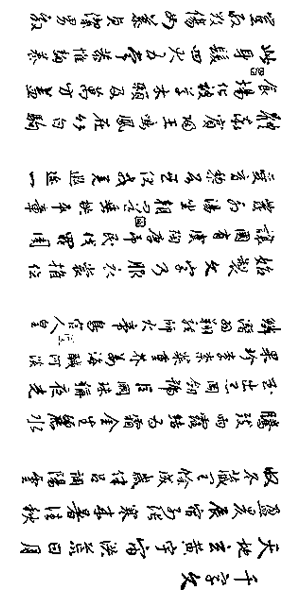 千字文
天地玄黃宇宙洪荒日月
盈昃辰宿列張寒來暑往秋
收冬藏閏餘成歲律呂調陽雲
騰致雨露結為霜金生麗水
玉出崑岡劍號巨闕珠稱夜光
果珍李柰菜重芥薑海鹹河淡
鱗潛羽翔龍師火帝鳥官人皇
始制文字乃服衣裳推位
讓國有虞陶唐弔民伐罪周
發商湯坐朝問道垂拱平章
愛育黎首臣伏戎羌遐邇一
體率賓歸王鳴鳳在竹白駒
食場化被草木賴及萬方蓋
此身髮四大五常恭惟鞠養
豈敢毀傷女慕貞潔男效